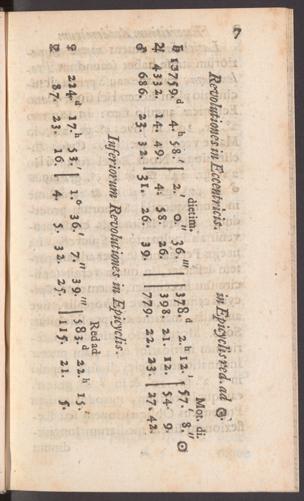 7
Revolutiones in Eccentricis. in Epicyclis red. ad ☉.
dietim. Mot. di.
♄ 13759.d 4.h 58.′ | 2.′ 0.″ 36.‴ || 378.d 2.h 12.′ | 57.′ 8.″ ☉
♃ 4332. 14. 49. | 4. 58. 26. || 398. 21. 12. | 54. 9.
♂ 686. 23. 32. | 31. 26. 39. || 779. 22. 23. | 27. 42.
Inferiorum Revolutiones in Epicyclis.
Red ad
♀ 224.d 17.h 53.′ | 1.° 36.′ 7.″ 39.‴ | 583.d 22.h 15.′
☿ 87. 23. 16. | 4. 5. 32. 25. | 115. 21. 5.